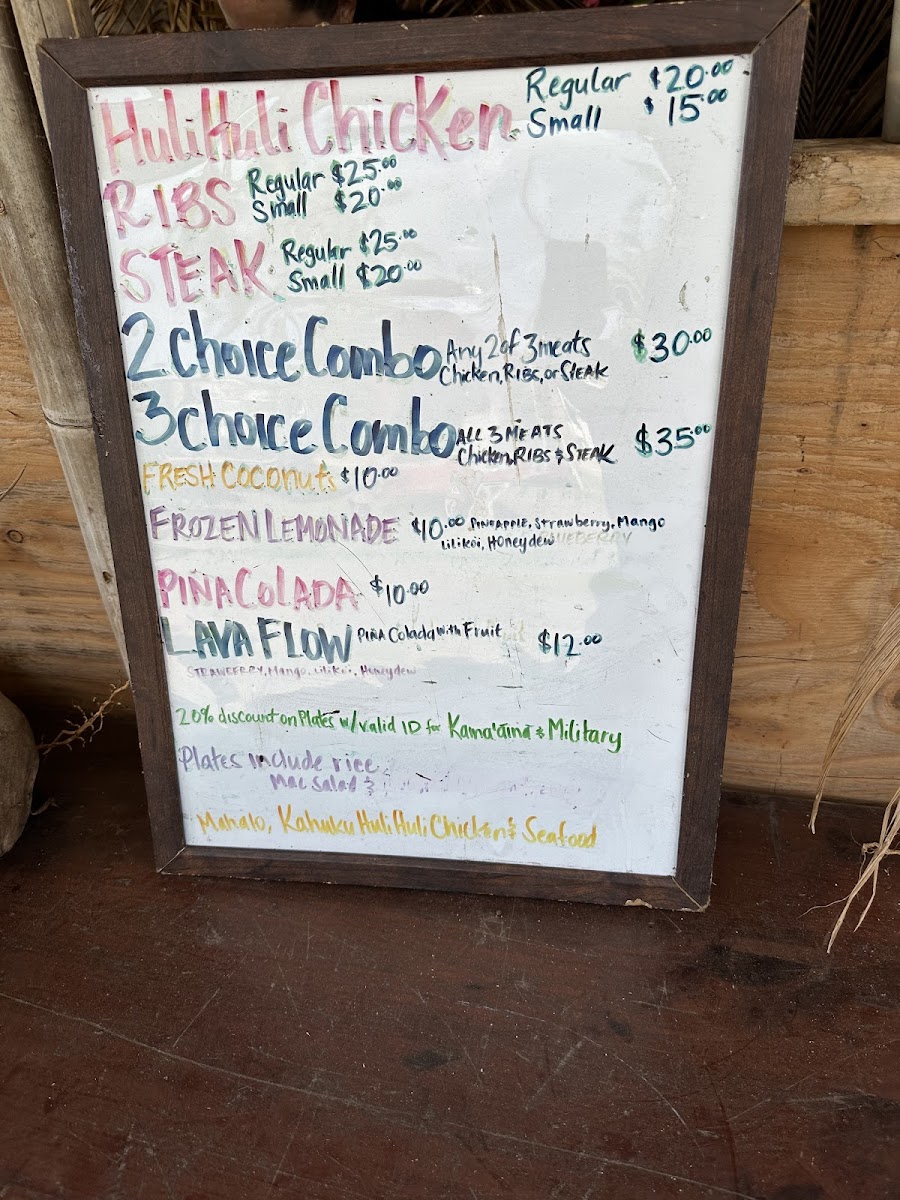 HuliHuli Chicken Regular $20.00
Small $15.00
RIBS Regular $25.00
Small $20.00
STEAK Regular $25.00
Small $20.00
2 Choice Combo Any 2 of 3 meats $30.00
Chicken, RIBS, or STEAK
3 choice Combo ALL 3 MEATS $35.00
Chicken, RIBS & STEAK
FRESH COCONuts $10.00
FROZEN LEMONADE $10.00 PINEAPPLE, Strawberry, Mango
Lilikoi, Honeydew
PIÑA COLADA $10.00
LAVA FLOW PIÑA Colada with Fruit $12.00
STRAWBERRY, Mango, Lilikoi, Honeydew
20% discount on Plates w/ valid ID for Kama'aina & Military
Plates include rice,
Mac Salad &
Mahalo, Kahuku HuliHuli Chicken & Seafood